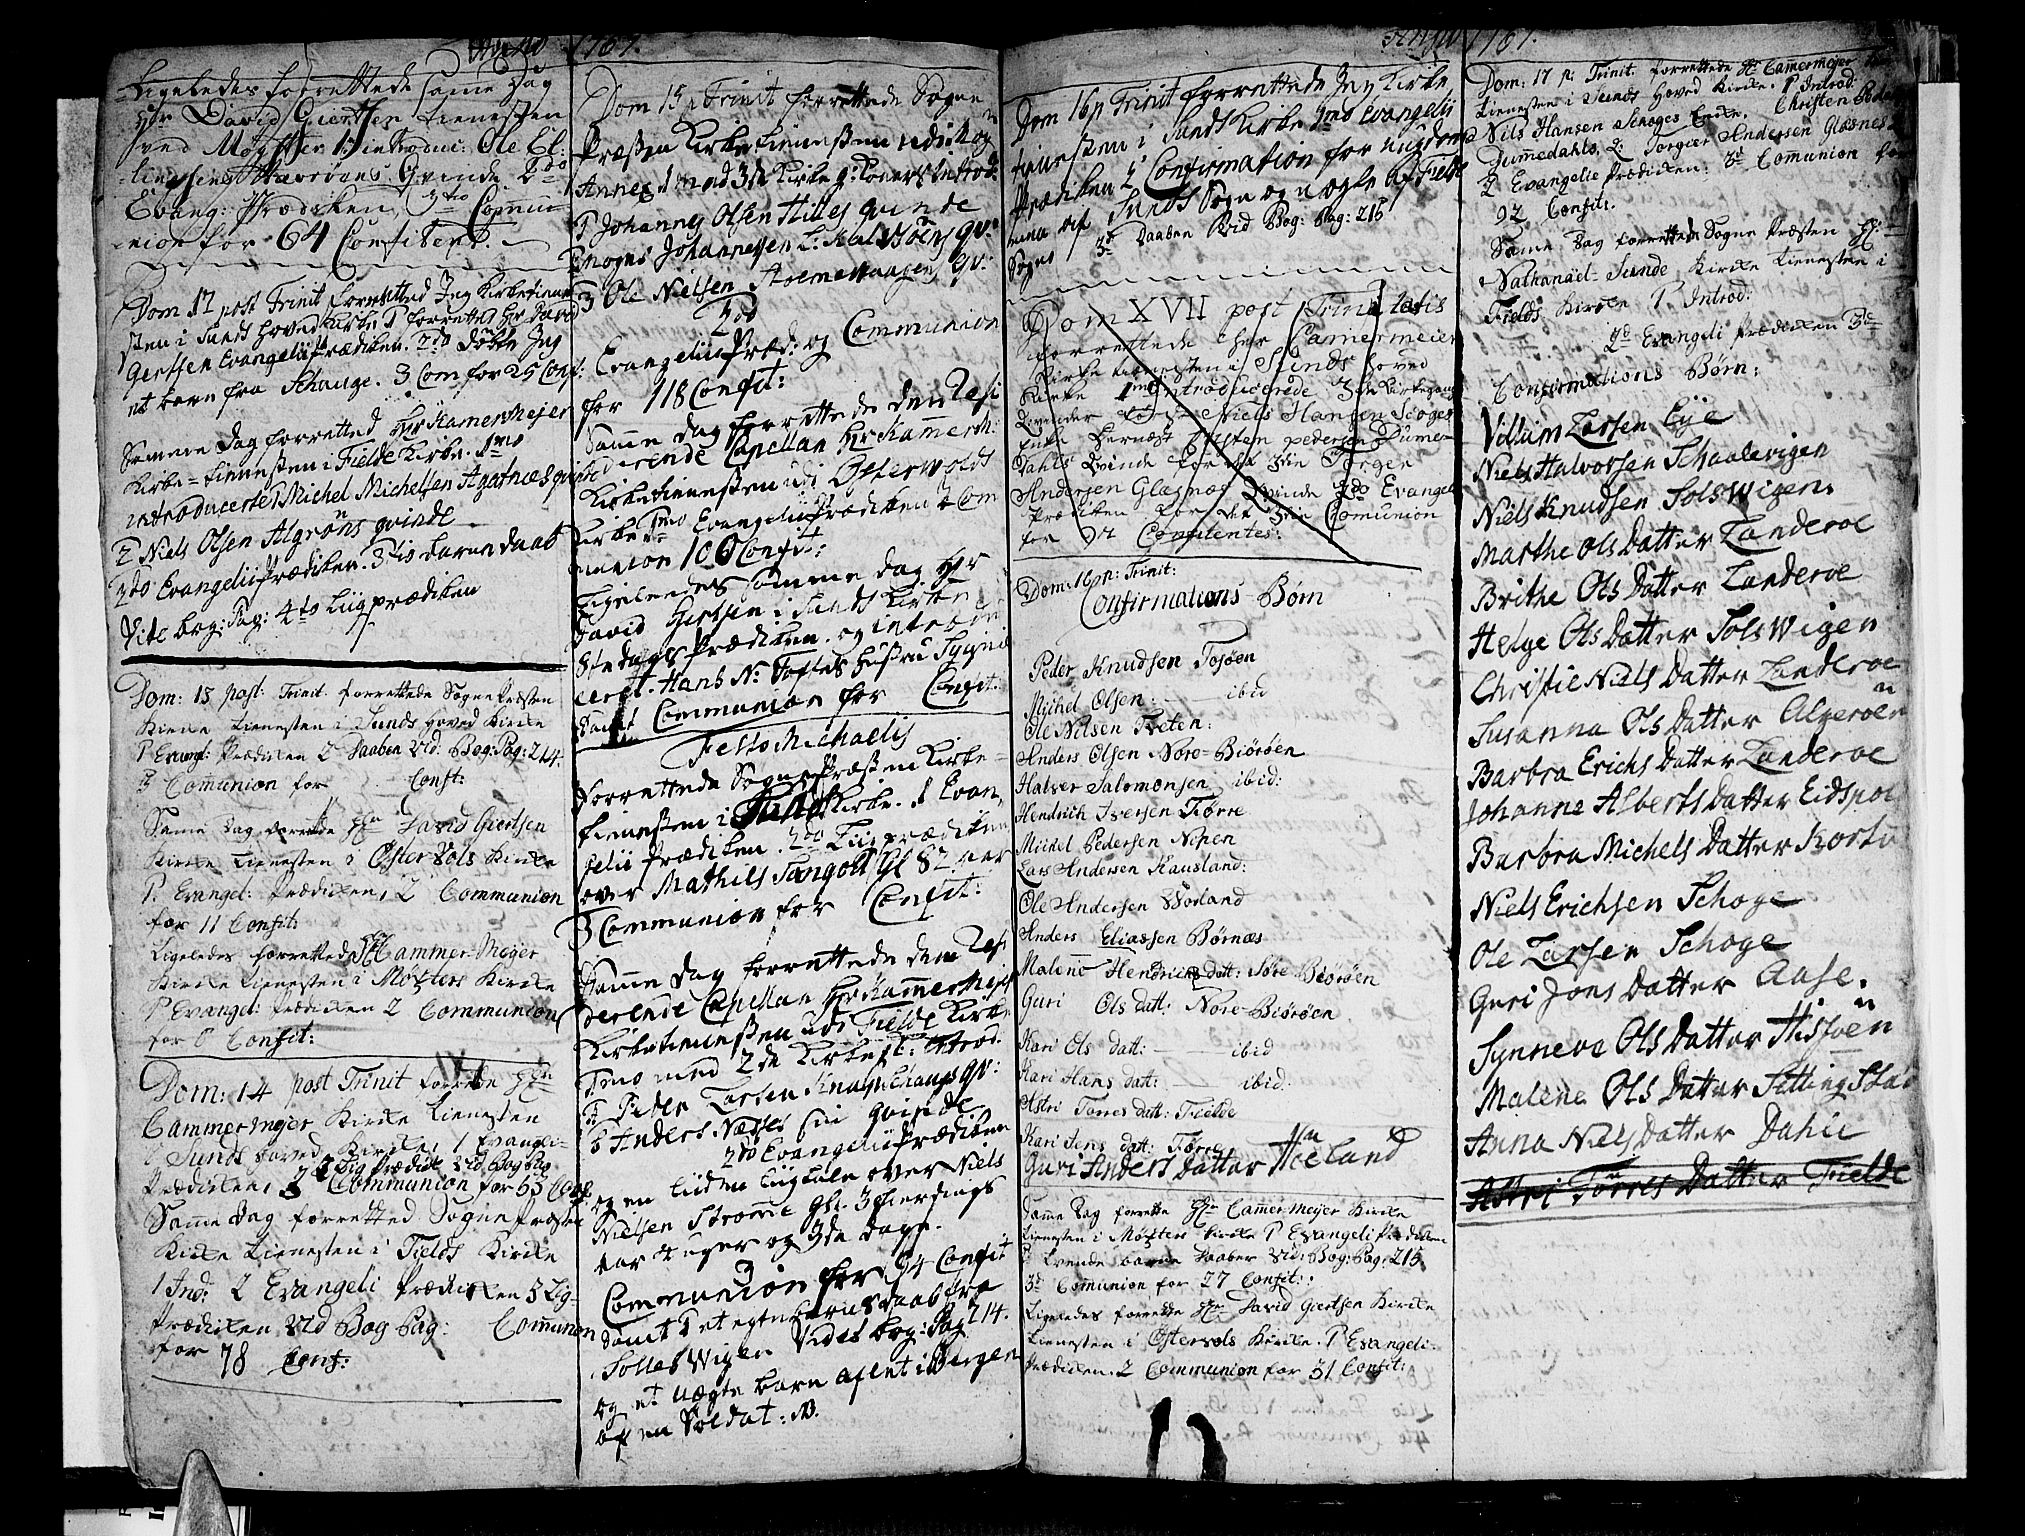 Anno 1767.
Ligeledes forrettede same Dag
Hr David Giertsen tienesten
ved Møgster 1 introduc: Ole El:
Qvinde 2do
Evang: Prædiken, 3tio Commu
nion for 64 Confitent.
Dom 12 post Trinit forretted Jeg Kirketienne
sten i Sunds hoved Kirke P forretted Hr David
Gertsen Evangelii Prædiken. 2do Døbte Jeg
et barn fra Schauge. 3 Com for 25 Conf:
Samme Dag forretted Hr KamerMejer
Kirke-tienesten i Fielde Kirke. 1mo
introducerte Michel Michelsen Agatnæs qvinde
2 Niels Olsen Algrøns qvinde
2do Evangelii Prædiken. 3tio baren daab
Vide bog: Pag: 4to Liigprædiken
Dom: 13 post: Trinit forrettede Sogne Præsten
Kirke Tienesten i Sunds Hoved Kirke
P Evang: Prædiken 2 Daaben vid: Bog: Pag: 214.
3 Communion for Confit:
Same Dag forrette Hrn David Giertsen
Kirke Tienesten i Øster Vols Kirke
P. Evangel: Prædiken, 2 Communion
for 11 Confit:
Ligeledes forrettede Hr Cammer-Mejer
Kirke Tienesten i Møgsters Kirke
P Evangel: Prædiken 2 Communion
for 0 Confit:
Dom: 14 post Trinit forrette Hrn
Cammermejer Kirke Tienesten
i Sunds hoved Kirke, 1 Evangeli-
Prædiken, 2 Lig Prædik vid Bog Pag
3 Communion for 65 Conf
Samme Dag forretted Sogne Præsten
Kirke Tienesten i Fields Kirke
1 Ind: 2 Evangeli Prædiken 3 Lig-
Prædiken vid Bog Pag: Communion
for 78 Conf:
Dom 15 p Trinit forrettede Sogne
Præsten Kirketienesten udi
Annex 1 med 3de Kirkeg: Koners Introd:
P Johannes Olsen Hilles qvinde
2 Mogns Johannessen L: Kalssöens qv:
3 Ole Nielsen qv:
2do
Evangelii Præd: og Communion
for 118 Confit:
Samme dag forrettede den Resi
derende Capellan Hr KamerM:
Kirketienesten udi Østerwolds
Kirke 1mo Evangelii Prædiken 2 Com
munion 106 Confit:
Ligeledes samme dag Hr
David Gertsen i Sunds Kirke
Søndags Prædiken og introdu
ceret. Hans N: Toftes hustru Sygne
Samt Communion for Confit:
Festo Michaelis
Forrettede Sogne Præsten Kirke-
tienesten i Sunds Kirke. 1 Evan
gelii Prædiken. 2do Liig prædiken
over Mathils Tangold Gl 82 aar
3 Communion for Confit:
Samme dag forrettede den Resi
derende Capellan Hr Kammermejer
Kirketienesten udi Fielde Kirke
1mo med 2de Kirkeg: Introd:
1 Peder Larsen Schaugs qv:
2 Anders Næsses qvinde
2do Evangelii Prædiken
og en liiden Liigtale over Niels
Nielsen Strømme Gl. 3 fierdings
aar 4 uger og 3de dage.
3
Communion for 94 Confit
samt Pet egte barns daab fra
SollesWigen Vides bog: Pag 214.
og et Uægte barn aflet i Bergen
af en Soldat: NB.
Anno 1767.
Dom 16 p Trinit forrettede Jeg Kirke
tienesten i Sunds Kirke 1mo Evangelii
Prædiken 2 Confirmation for ungdom
mene af Sunds Sogn og nogle af Fielde
Sogns 3de Daaben Vid Bog: Pag: 215
Dom XVII post Trinitatis
forrettede Her Camermeier
Kirke tienesten i Sunds hoved
Kirke 1mo introducerede 3de Kirkegangs
Qvinder Niels Hansen Scoges
Enke Dernæst Cristen pedersen Dume-
Dahls Qvinde for det 3die Torger
Andersen Glæsnæs Qvinde 2do Evangel
Prædiken for det 3die Comunion
for 92 Confitentes:
Dom: 16 p: Trinit:
Confirmations Børn
Peder Knudsen Tosöen
Michel Olsen ibid
Ole Nilsen Tveten:
Anders Olsen Nore-Biöröen
Halver Salomonsen ibid:
Hendrich Iversen Tørre
Michel Pedersen Nipen
Lars Andersen Hausland:
Ole Andersen Worland
Anders Eliassen Børnæs
Malene Hendrichs datt: Søre Biöröen
Guri Ols datt: Nore-Biöröen
Kari Ols datt: ibid
Kari Hans datt: ibid:
Astri Torres datt: Fielde
Kari Jens datt: Tørre
Guri Anders Datter Hieland
Samme Dag forrette Hrn Cammermejer Kirke
Tienesten i Møgster Kirke P Evangeli Prædiken
2 Tvende børns Daaber vid: Bog: Pag: 215
3d Communion for 27 Confit:
Ligeledes forrette Hrn David Giertsen Kirke
Tienesten i Østervols Kirke. P Evangeli-
Prædiken. 2 Communion for 31 Confit:
Dom: 17 p: Trinit: forrettede Hr Cammermejer
tienesten i Sunds Hoved Kirke. P Introd:
Nils Hansen Schoges Enke, Christen Peders
Dummedahls, 2: Torger Andersen Glæsnes
2 Evangelie Prædiken: 3d Communion for
92 Confit:
Same Dag forrettede Sogne Præsten Hr:
Nathanael Sunde, Kirke Tienesten i
Fields Kirke P. Introd:
2d Evangeli Prædiken 3de
Confirmations Børn:
Villum Larsen Eye
Niels Halvorsen Schaalevigen
Niels Knudsen Solswigen
Marthe Ols Datter Landeroe
Brithe Ols Datter Landeroe
Helge Ols Datter Solswigen
Christie Niels Datter Landeroe
Susanna Ols Datter Algeroen
Barbra Erichs Datter Landeroe
Johanne Alberts Datter Eidspol
Barbra Michels Datter Kortv
Niels Erichsen Schoge
Ole Larsen Schoge
Guri Jons Datter Aase.
Synneve Ols Datter Hissöen
Malene Ols Datter
Anna Niels Datter Dahle
Astri Tørres Datter Fielde